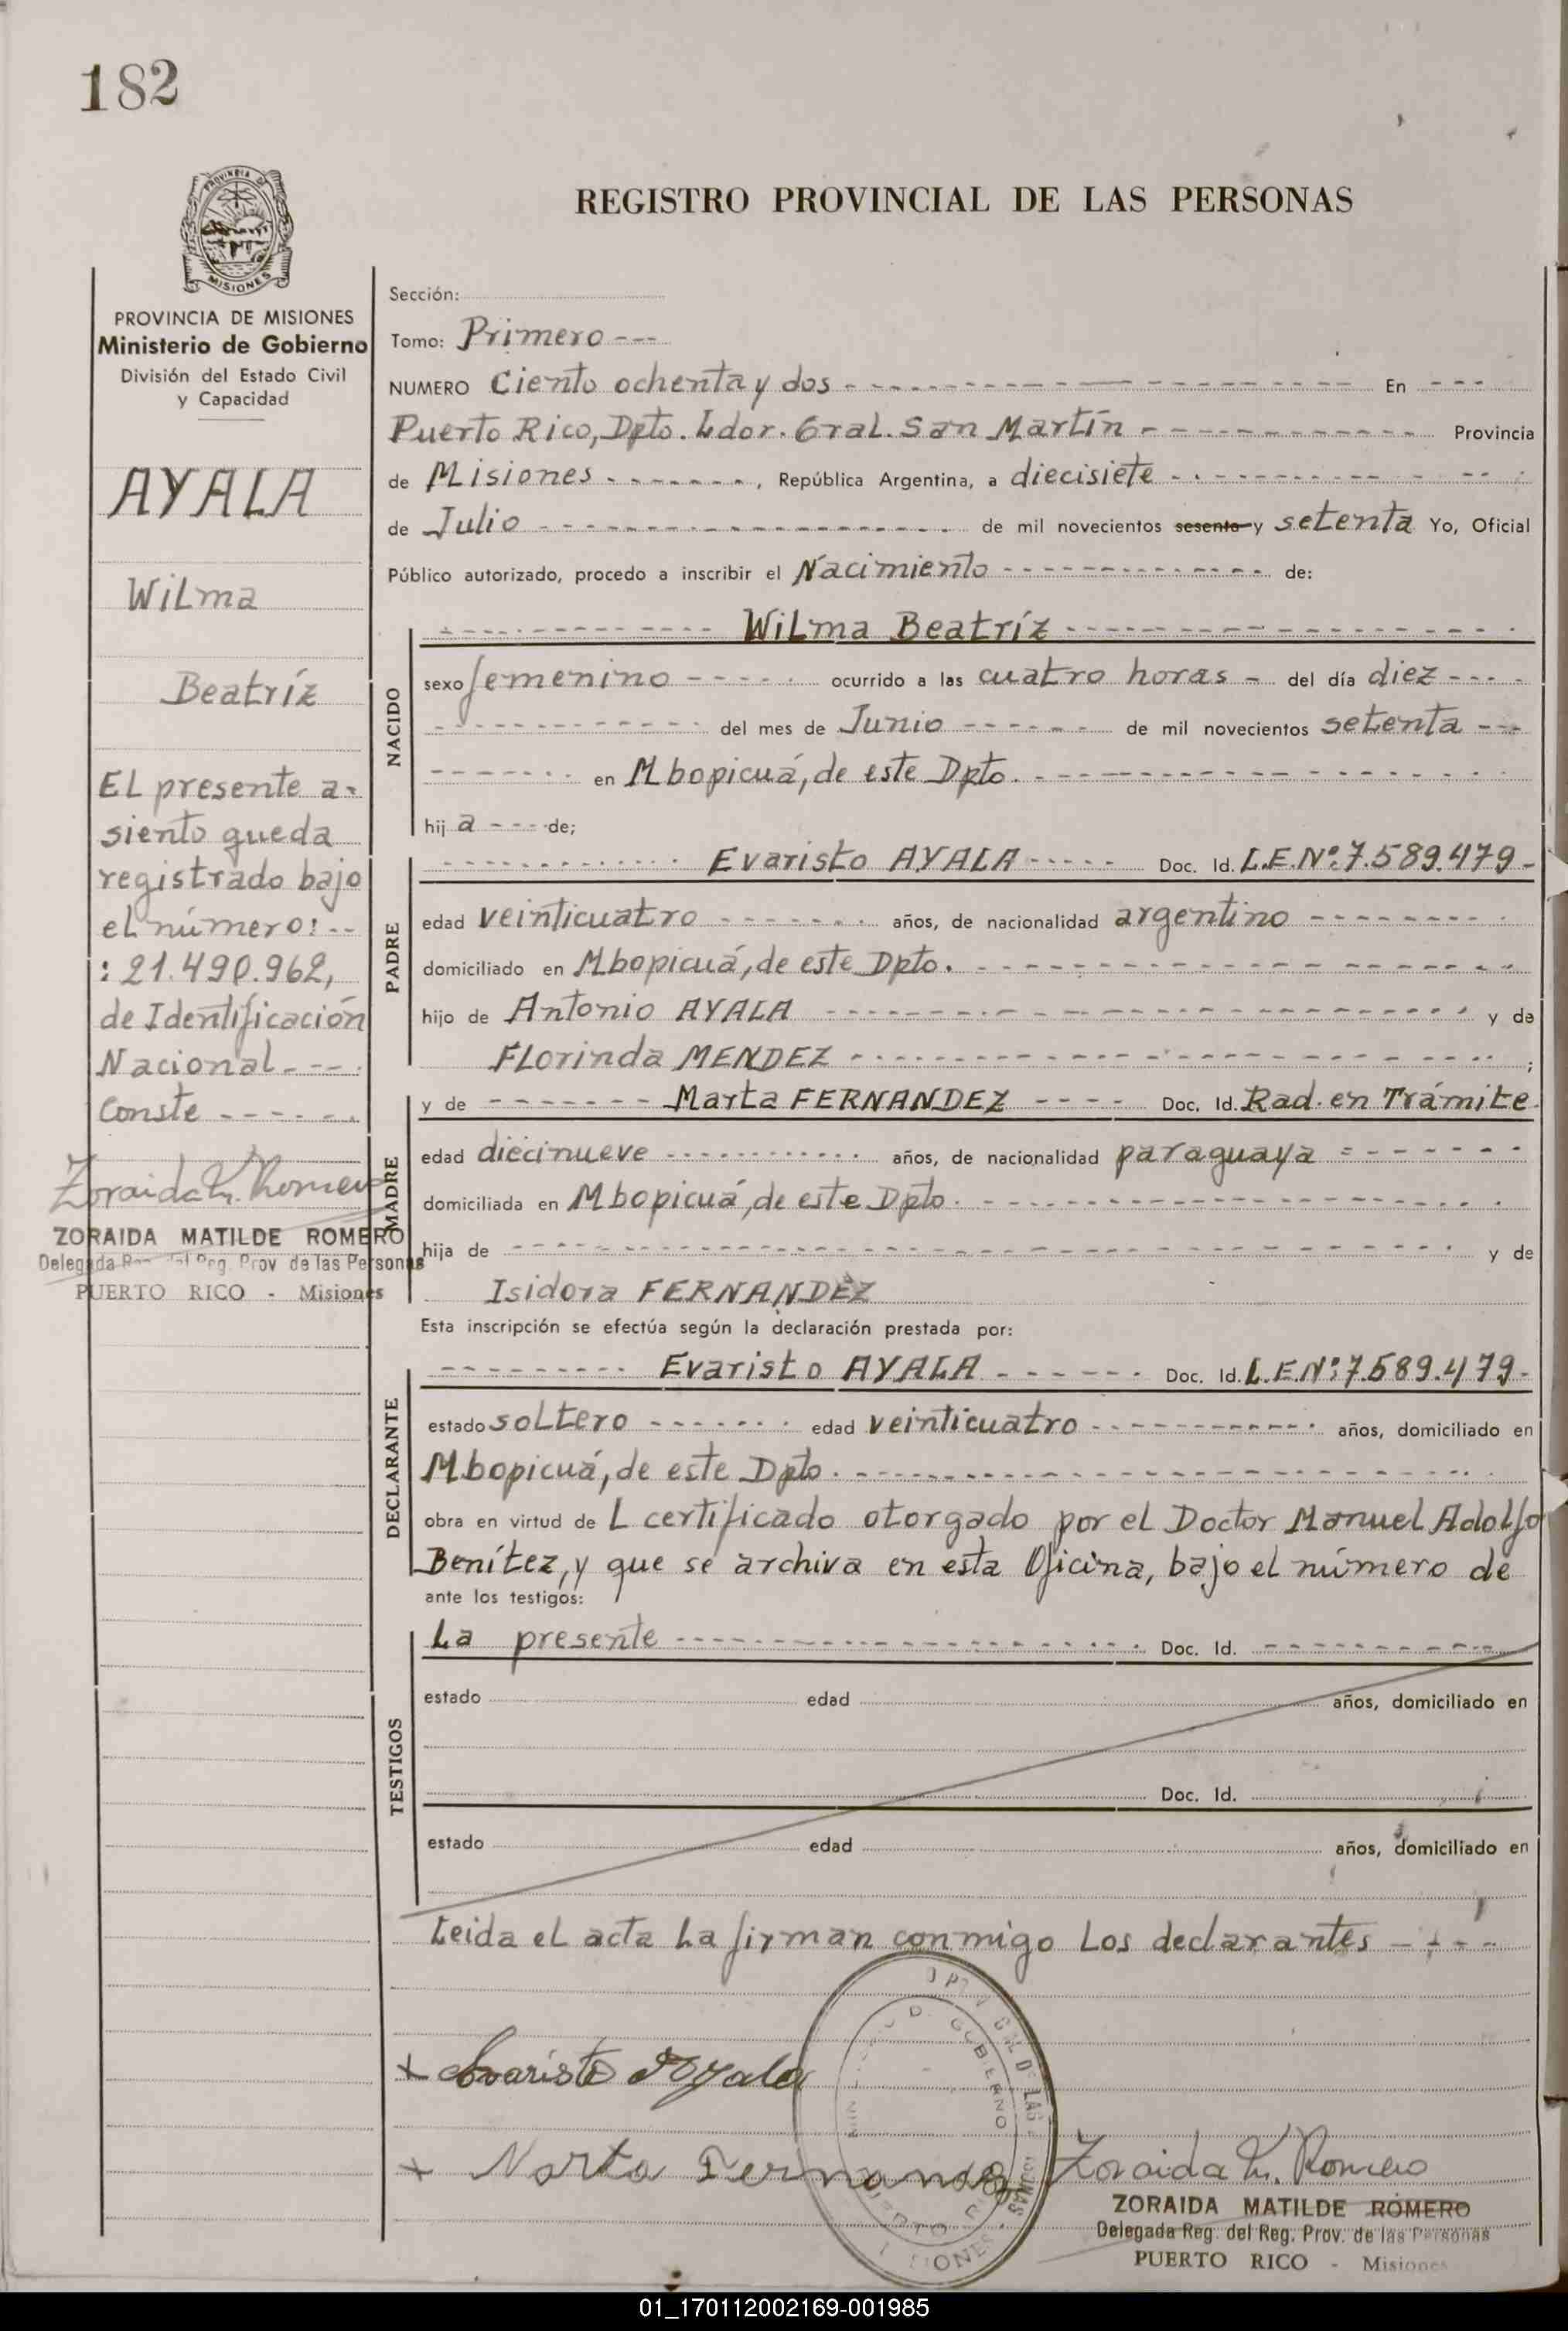 182
PROVINCIA DE MISIONES
REGISTRO PROVINCIAL DE LAS PERSONAS
PROVINCIA DE MISIONES
Ministerio de Gobierno
División del Estado Civil
y Capacidad
AYALA
Wilma
Beatríz
El presente a-
siento queda
registrado bajo
el número: --
: 21.490.962,
de Identificación
Nacional ---
Conste ------
Zoraida M. Romero
ZORAIDA MATILDE ROMERO
Delegada Reg. del Reg. Prov de las Personas
PUERTO RICO - Misiones
Sección:
Tomo: Primero ---
NUMERO Ciento ochenta y dos ------ En ---
Puerto Rico, Dpto. Ldor. Gral. San Martín ------ Provincia
de Misiones ------, República Argentina, a diecisiete ------
de Julio ------ de mil novecientos sesenta y setenta Yo, Oficial
Público autorizado, procedo a inscribir el Nacimiento ------ de:
NACIDO
------ Wilma Beatríz ------
sexo femenino ------ ocurrido a las cuatro horas - del día diez ----
------ del mes de Junio ------ de mil novecientos setenta ---
------ en Mbopicuá, de este Dpto. ------
hij a --- de;
PADRE
------ Evaristo AYALA ----- Doc. Id. L.E.Nº:7.589.479-
edad veinticuatro ------ años, de nacionalidad argentino ------
domiciliado en Mbopicuá, de este Dpto. ------
hijo de Antonio AYALA ------ y de
Florinda MENDEZ ------ ;
MADRE
y de ------ Marta FERNANDEZ ---- Doc. Id. Rad. en Trámite.
edad diecinueve ------ años, de nacionalidad paraguaya ------
domiciliada en Mbopicuá, de este Dpto. ------
hija de ------ y de
Isidora FERNANDEZ
Esta inscripción se efectúa según la declaración prestada por:
DECLARANTE
------ Evaristo AYALA ------ Doc. Id. L.E.Nº:7.589.479-
estado soltero ------ edad veinticuatro ------ años, domiciliado en
Mbopicuá, de este Dpto. ------
obra en virtud de L certificado otorgado por el Doctor Manuel Adolfo
Benítez, y que se archiva en esta Oficina, bajo el número de
ante los testigos:
TESTIGOS
La presente ------ Doc. Id. ------
estado edad años, domiciliado en
Doc. Id.
estado edad años, domiciliado en
Leida el acta La firman conmigo Los declarantes ----
+ Evaristo Ayala
+ Marta Fernandez
Zoraida M. Romero
ZORAIDA MATILDE ROMERO
Delegada Reg. del Reg. Prov. de las Personas
PUERTO RICO - Misiones
01_170112002169-001985